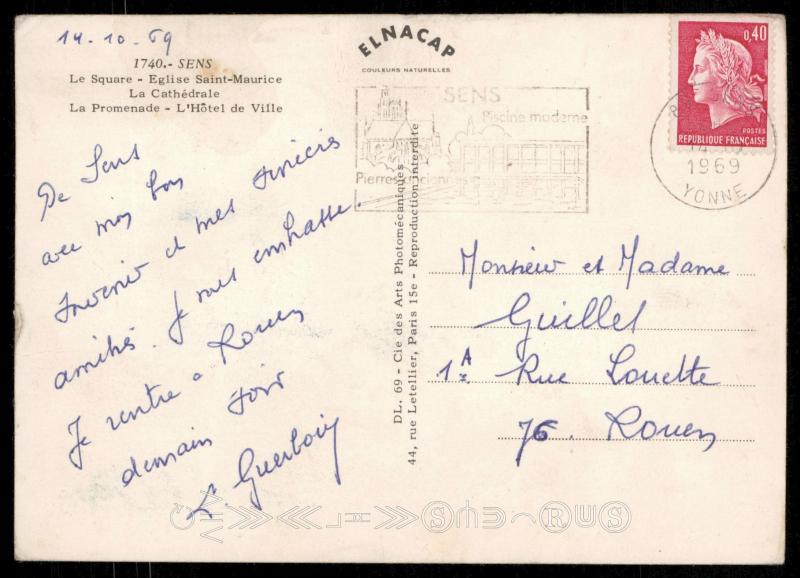 14-10-69
1740.- SENS
Le Square - Eglise Saint-Maurice
La Cathédrale
La Promenade - L'Hôtel de Ville
De Sens
avec mon bon
souvenir et mes sincères
amitiés. Je vous embrasse.
Je rentre à Rouen
demain soir
L. Guerboin
ELNACAP
COULEURS NATURELLES
DL. 69 - Cie des Arts Photomécaniques
44, rue Letellier, Paris 15e - Reproduction interdite
SENS
Piscine moderne
Pierres anciennes
0,40
POSTES
REPUBLIQUE FRANÇAISE
1969
YONNE
Monsieur et Madame
Guillet
1A Rue Louette
76. Rouen